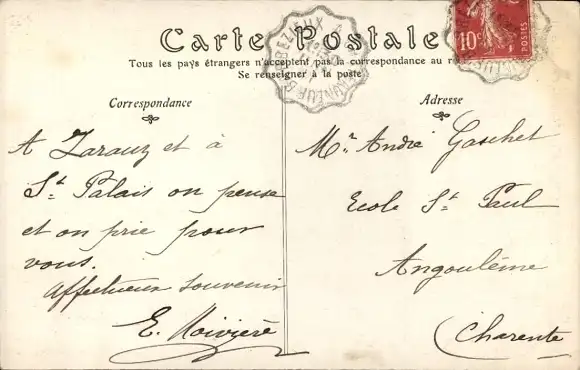 Carte Postale
Tous les pays étrangers n'acceptent pas la correspondance au
Se renseigner à la poste
Correspondance
Adresse
A Zarauz et à
St. Palais on pense
et on prie pour
vous.
Affectueux souvenir
E.
Mr. André Gaschet
Ecole St. Paul
Angoulême
Charente
10c
POSTES